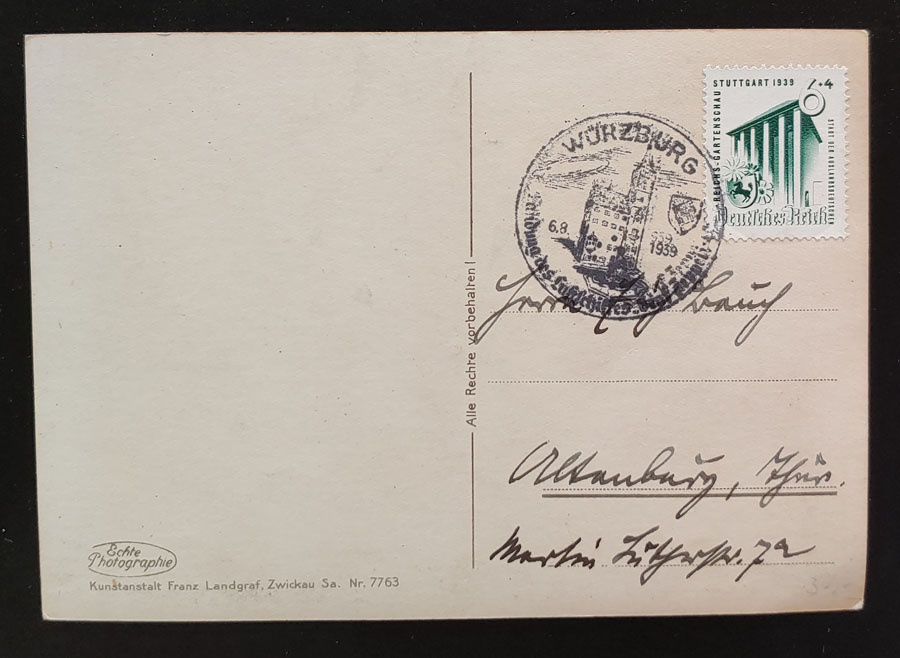 STUTTGART 1939
REICHS-GARTENSCHAU
6+4
STADT DER AUSLANDSDEUTSCHEN
Deutsches Reich
WÜRZBURG
6.8.
1939
Landung des Luftschiffes "Graf Zeppelin"
Herrn
Bauch
Alle Rechte vorbehalten!
Altenburg, Thür.
Martin Lutherstr. 7a
Echte
Photographie
Kunstanstalt Franz Landgraf, Zwickau Sa. Nr. 7763